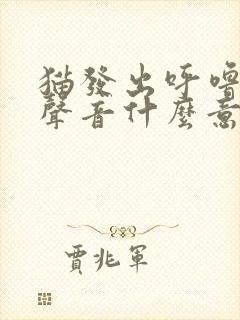 貓發出呼嚕
聲音什麼意
賈兆軍